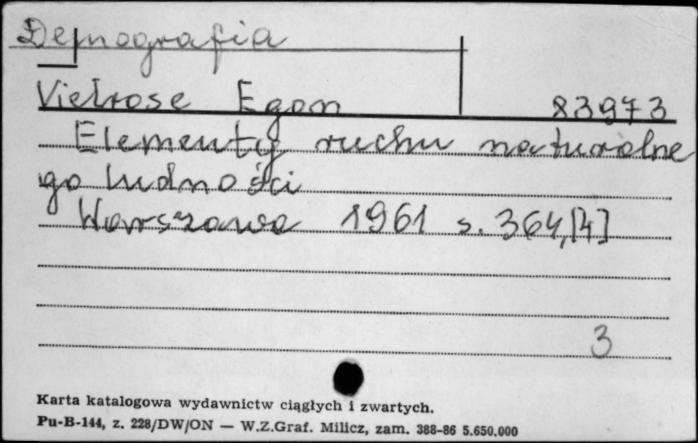 Demografia
Vielrose Egon 83973
Elementy ruchu naturalne
go ludności
Warszawa 1961 s. 364,[4]
3
Karta katalogowa wydawnictw ciągłych i zwartych.
Pu-B-144, z. 228/DW/ON — W.Z.Graf. Milicz, zam. 388-86 5.650.000